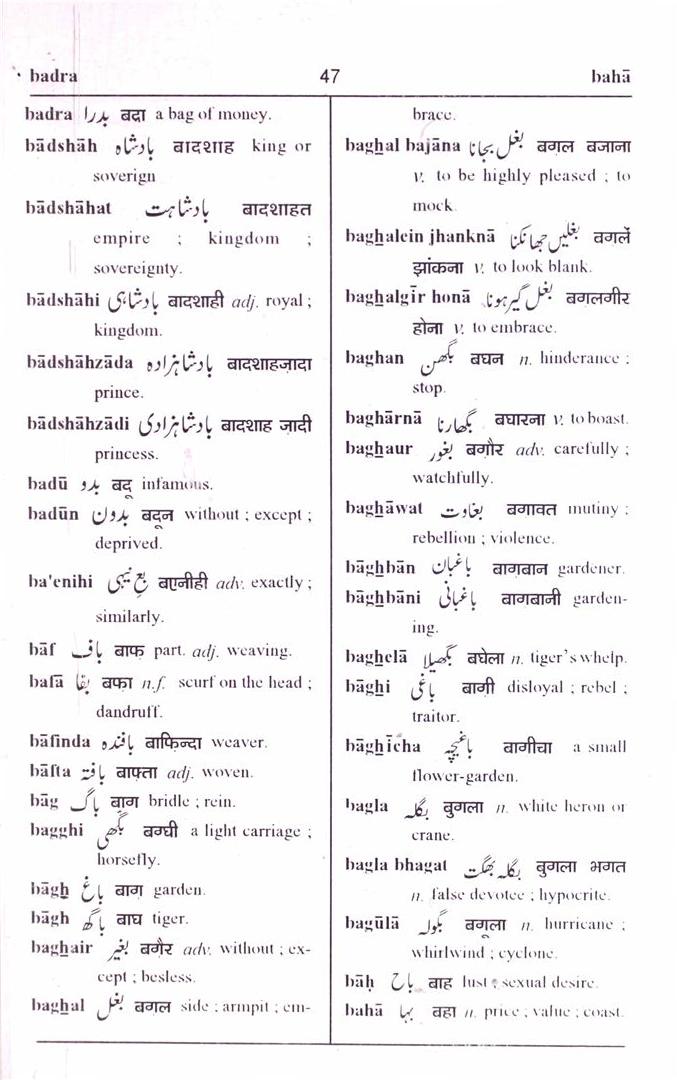 badra 47 bahā
badra بدرا बदा a bag of money.
bādshāh بادشاہ बादशाह king or
soverign
bādshāhat بادشاہت बादशाहत
empire ; kingdom ;
sovereignty.
bādshāhi بادشاہی बादशाही adj. royal ;
kingdom.
bādshāhzāda بادشاہزادہ बादशाहज़ादा
prince.
bādshāhzādi بادشاہزادی बादशाह ज़ादी
princess.
badū بدو बदू infamous.
badūn بدون बदून without ; except ;
deprived.
ba'enihi बएनीही adv. exactly ;
similarly.
bāf باف बाफ़ part. adj. weaving.
bafā बफा n.f. scurf on the head ;
dandruff.
bāfinda بافندہ बाफिन्दा weaver.
bāfta بافتہ बाफ्ता adj. woven.
bāg باگ बाग bridle ; rein.
bagghi بگھی बग्घी a light carriage ;
horsefly.
bāgh باغ बाग़ garden.
bāgh باگھ बाघ tiger.
baghair بغیر बगै़र adv. without ; ex-
cept ; besless.
baghal بغل बगल side ; armpit ; em-
brace.
baghal bajāna بغل بجانا बगल बजाना
v. to be highly pleased ; to
mock.
baghalein jhanknā بغلیں جھانکنا बगलें
झांकना v. to look blank.
baghalgīr honā بغل گیر ہونا बगलगीर
होना v. to embrace.
baghan بگھن बघन n. hinderance ;
stop.
baghārnā بگھارنا बघारना v. to boast.
baghaur بغور बग़ौर adv. carefully ;
watchfully.
baghāwat بغاوت बगावत mutiny ;
rebellion ; violence.
bāghbān باغبان बाग़बान gardener.
bāghbāni باغبانی बागबानी garden-
ing.
baghelā بگھیلا बघेला n. tiger's whelp.
bāghi باغی बाग़ी disloyal ; rebel ;
traitor.
bāghīcha باغیچہ बागीचा a small
flower-garden.
bagla بگلہ बुगला n. white heron or
crane.
bagla bhagat بگلہ بھگت बुगला भगत
n. false devotee ; hypocrite.
bagūlā بگولہ बगूला n. hurricane ;
whirlwind ; cyclone.
bāḥ باح बाह lust ; sexual desire.
bahā بہا वहा n. price ; value ; coast.